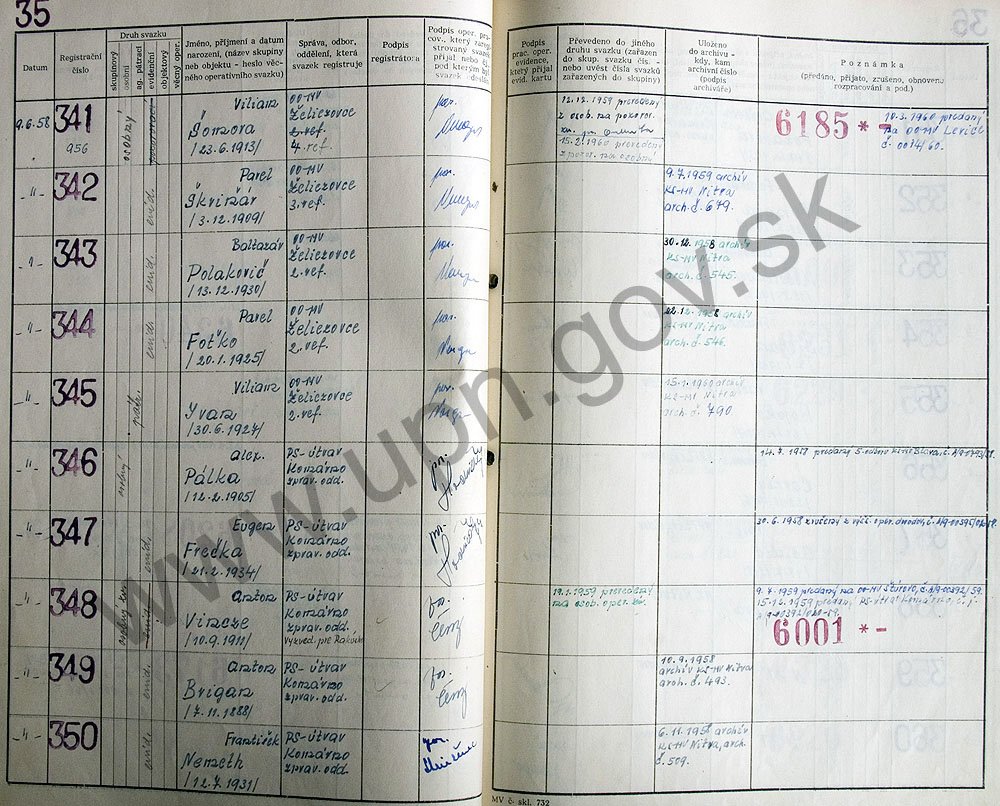 35
Datum
Registrační
číslo
Druh svazku
skupinový
osobní
ag. pátrací
evidenční
objektový
věcný oper.
Jméno, příjmení a datum
narození, (název skupiny
neb objektu - heslo věc-
ného operativního svazku)
Správa, odbor,
oddělení, která
svazek registruje
Podpis
registrátora
Podpis oper. pra-
Podpis
prac. oper.
evidence,
který přijal
evid. kartu
Převedeno do jiného
druhu svazku (zařazen
do skup. svazku čís. -
nebo uvést čísla svazků
zařazených do skupiny)
Uloženo
do archivu -
kdy, kam
archivní číslo
(podpis
archiváře)
Poznámka
(předáno, přijato, zrušeno, obnoveno
rozpracování a pod.)
9.6.58
341
956
osobný
Viliam
Šomora
/23.6.1913/
OO-MV
Želiezovce
4. ref.
por.
12.12.1959 prevedený
z osob. na pozor.
15.2.1960 prevedený
z pozor. na osobný
6185 * -
10.3.1960 predaný
na OO-MV Levice
č. 0014/60.
-"-
342
evid.
Pavel
Škvirár
/3.12.1909/
OO-MV
Želiezovce
3. ref.
por.
9.7.1959 archív
KS-MV Nitra
arch. č. 679.
-"-
343
evid.
Baltazár
Polakovič
/13.12.1930/
OO-MV
Želiezovce
2. ref.
por.
30.12.1958 archív
KS-MV Nitra
arch. č. 545.
-"-
344
evid.
Pavel
Foťko
/20.1.1925/
OO-MV
Želiezovce
2. ref.
por.
22.12.1958 archív
KS-MV Nitra
arch. č. 546.
-"-
345
pátr.
Viliam
Yvan
/30.6.1927/
OO-MV
Želiezovce
2. ref.
por.
15.1.1960 archív
KS-MV Nitra
arch. č. 790.
-"-
346
osobný
Alex.
Pálka
/12.2.1905/
PS-útvar
Komárno
zprav. odd.
-"-
347
evid.
Eugen
Frečka
/21.2.1934/
PS-útvar
Komárno
zprav. odd.
-"-
348
Anton
Vincze
/10.9.1911/
PS-útvar
Komárno
zprav. odd.
Vyzved. pre Rakúsko
por.
Černý
19.1.1959 prevedený
na osob. oper. zv.
6001 * -
-"-
349
evid.
Anton
Brigan
/7.11.1888/
PS-útvar
Komárno
zprav. odd.
por.
Černý
10.9.1958
archív KS-MV Nitra
arch. č. 493.
-"-
350
evid.
František
Nemeth
/12.7.1931/
PS-útvar
Komárno
zprav. odd.
por.
6.11.1958 archív
KS-MV Nitra, arch.
č. 509.
MV č. skl. 732
www.upn.gov.sk